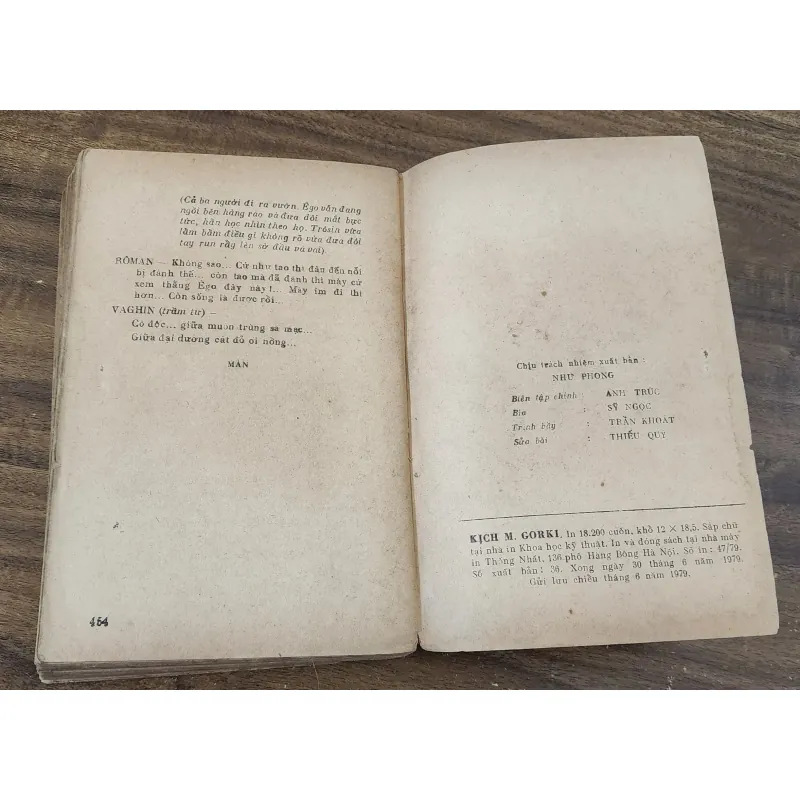 (Cả ba người đi ra vườn. Êgo vẫn đang
ngồi bên hàng rào và đưa đôi mắt bực
tức, hằn học nhìn theo họ. Trôsin vừa
lẩm bẩm điều gì không rõ vừa đưa đôi
tay run rẩy lên sờ đầu và vai).
RÔMAN — Không sao... Cứ như tao thì đâu đến nỗi
bị đánh thế... còn tao mà đã đánh thì mày cứ
xem thằng Êgo đấy này!... Mày im đi thì
hơn... Còn sống là được rồi...
VAGHIN (trầm tư) —
Cô độc... giữa muôn trùng sa mạc...
Giữa đại dương cát đỏ oi nồng...
MÀN
464
Chịu trách nhiệm xuất bản :
NHƯ PHONG
Biên tập chính : ANH TRÚC
Bìa : SỸ NGỌC
Trình bày : TRẦN KHOÁT
Sửa bài : THIẾU QUY
KỊCH M. GORKI. In 18.200 cuốn, khổ 12 × 18,5. Sắp chữ
tại nhà in Khoa học kỹ thuật. In và đóng sách tại nhà máy
in Thống Nhất, 136 phố Hàng Bông Hà Nội. Số in : 47/79.
Số xuất bản : 36. Xong ngày 30 tháng 6 năm 1979.
Gửi lưu chiểu tháng 6 năm 1979.